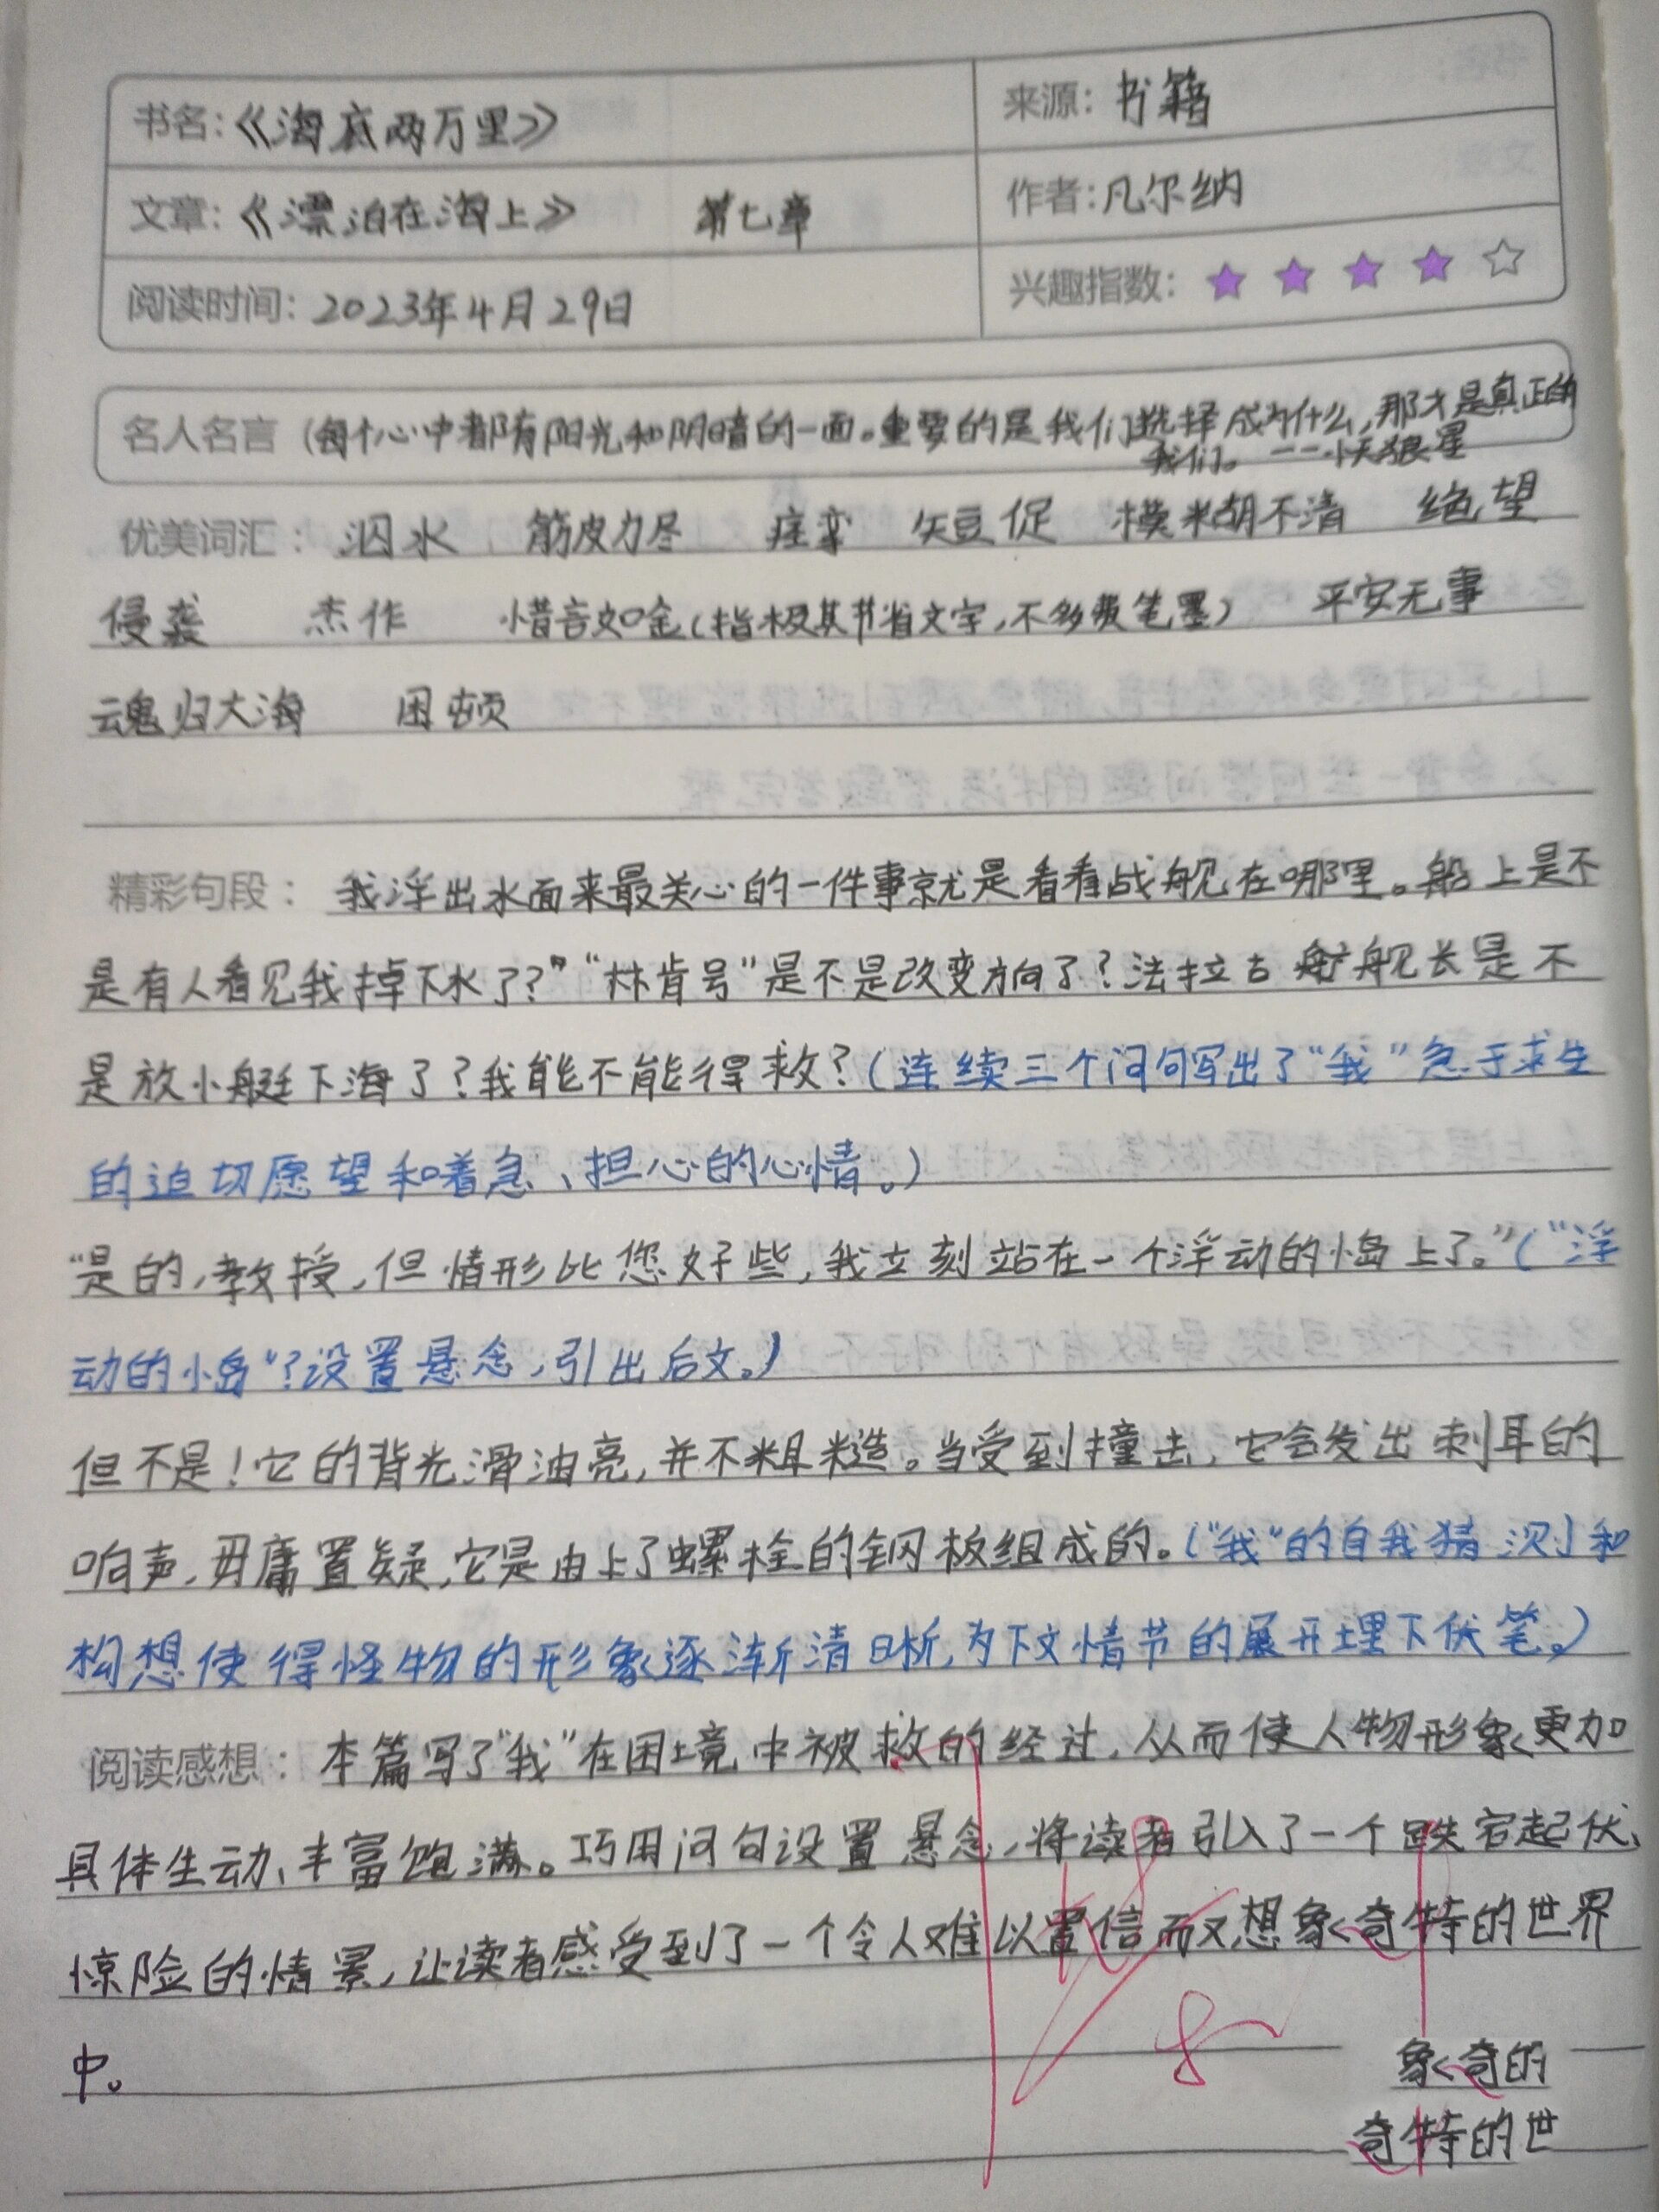 书名:《海底两万里》 来源:书籍
文章:《漂泊在海上》 第七章 作者:凡尔纳
阅读时间:2023年4月29日 兴趣指数:
名人名言 (每个心中都有阳光和阴暗的一面。重要的是我们选择成为什么,那才是真正的
我们。——小天狼星
优美词汇: 泅水 筋皮力尽 痉挛 短促 模糊不清 绝望
侵袭 杰作 惜言如金(指极其节省文字,不多费笔墨) 平安无事
魂归大海 困顿
精彩句段: 我浮出水面来最关心的一件事就是看看战舰在哪里。船上是不
是有人看见我掉下水了?"“林肯号”是不是改变方向了?法拉古 舰长是不
是放小艇下海了?我能不能得救?(连续三个问句写出了“我”急于求生
的迫切愿望和着急、担心的心情。)
“是的,教授,但情形比您好些,我立刻站在一个浮动的小岛上了。”(“浮
动的小岛”?设置悬念,引出后文。)
但不是!它的背光滑油亮,并不粗糙。当受到撞击,它会发出刺耳的
响声,毋庸置疑,它是由上了螺栓的钢板组成的。(“我”的自我猜测和
构想使得怪物的形象逐渐清晰,为下文情节的展开埋下伏笔。)
阅读感想: 本篇写了“我”在困境中被救的经过,从而使人物形象更加
具体生动、丰富饱满。巧用问句设置悬念,将读者引入了一个跌宕起伏、
惊险的情景,让读者感受到了一个令人难以置信而又想象奇特的世界
中。
象奇的
奇特的世